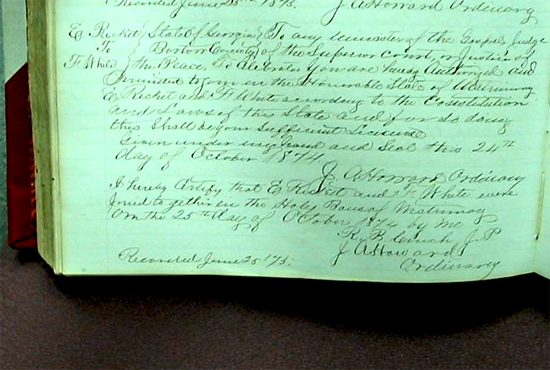 Recorded June 25th 1875. J A Howard Ordinary
E Ricket State of Georgia To any minister of the Gospel Judge
To Bartow County of the Superior Court, or Justice of
F White the Peace, To Celebrate you are hereby Authorized and
Permitted to join in the Honorable State of Matrimony
E Ricket and F White according to the Constitution
and Laws of this State and for so doing
this Shall be your Sufficient License
Given under my hand and Seal this 24th
day of October 1874
J A Howard Ordinary
I hereby Certify that E Ricket and F. White were
Joined together in the Holy Bans of Matrimony
On the 25th day of October 1874 by me
R. H. J P
Recorded June 25 1875. J A Howard
Ordinary